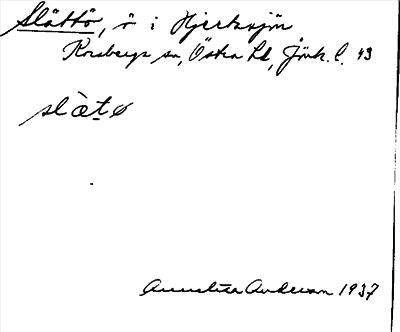 Slättö, ö i Hjertasjön
Korsberga sn, Östra hd, Jönk. l. 43
slæ̀tø
Annalisa Anderson 1937